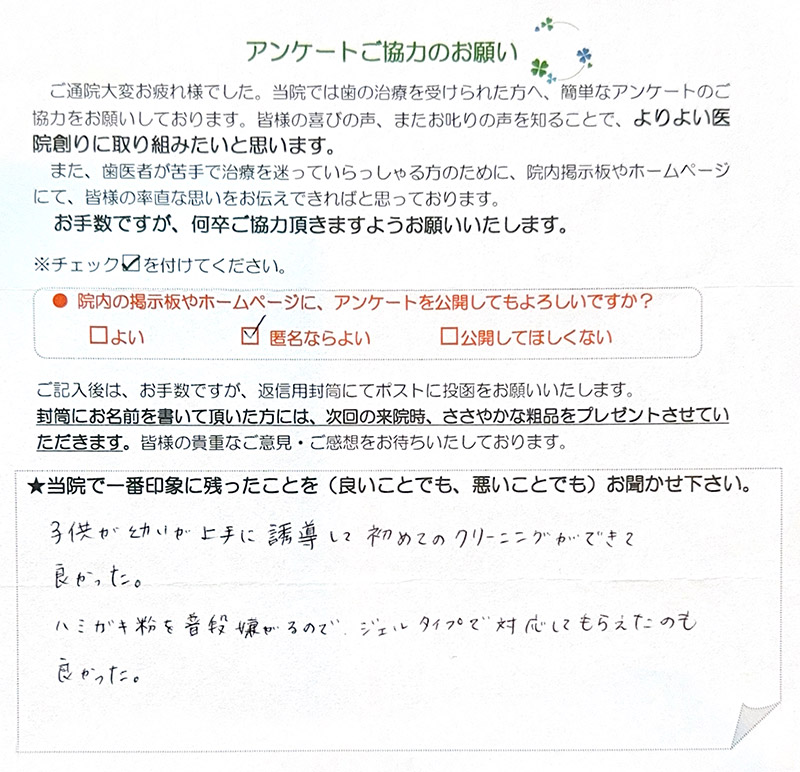 アンケートご協力のお願い
ご通院大変お疲れ様でした。当院では歯の治療を受けられた方へ、簡単なアンケートのご
協力をお願いしております。皆様の喜びの声、またお叱りの声を知ることで、よりよい医
院創りに取り組みたいと思います。
また、歯医者が苦手で治療を迷っていらっしゃる方のために、院内掲示板やホームページ
にて、皆様の率直な思いをお伝えできればと思っております。
お手数ですが、何卒ご協力頂きますようお願いいたします。
※チェック☑を付けてください。
● 院内の掲示板やホームページに、アンケートを公開してもよろしいですか？
□よい ☑匿名ならよい □公開してほしくない
ご記入後は、お手数ですが、返信用封筒にてポストに投函をお願いいたします。
封筒にお名前を書いて頂いた方には、次回の来院時、ささやかな粗品をプレゼントさせてい
ただきます。皆様の貴重なご意見・ご感想をお待ちいたしております。
★当院で一番印象に残ったことを（良いことでも、悪いことでも）お聞かせ下さい。
子供が幼いが上手に誘導して初めてのクリーニングができて
良かった。
ハミガキ粉を普段嫌がるので、ジェルタイプで対応してもらえたのも
良かった。